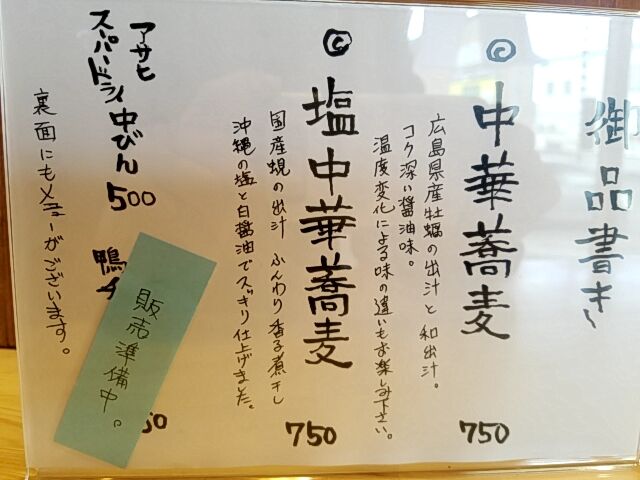 御品書き
© 中華蕎麦
広島県産牡蠣の出汁と和出汁。
コク深い醤油味。
温度変化による味の違いもお楽しみ下さい。
750
© 塩中華蕎麦
国産蜆の出汁 ふんわり香る煮干し
沖縄の塩と白醤油でスッキリ仕上げました。
750
アサヒ
スーパードライ中びん 500
鴨
50
販売準備中。
裏面にもメニューがございます。